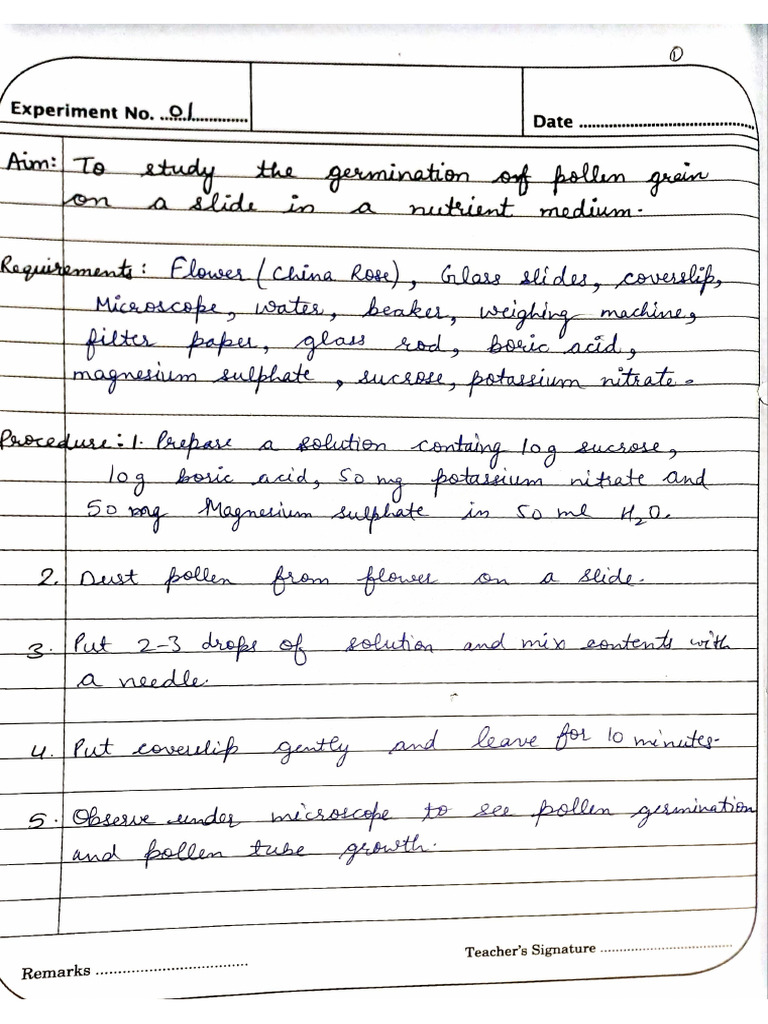 ①
Experiment No. ..01............
Date ............................................
Aim: To study the germination of pollen grain
on a slide in a nutrient medium.
Requirements: Flower (China Rose), Glass slides, coverslip,
Microscope, water, beaker, weighing machine,
filter paper, glass rod, boric acid,
magnesium sulphate, sucrose, potassium nitrate.
Procedure: 1. Prepare a solution containg 10g sucrose,
10g boric acid, 50 mg potassium nitrate and
50 mg Magnesium sulphate in 50 ml H₂O.
2. Dust pollen from flower on a slide.
3. Put 2-3 drops of solution and mix contents with
a needle.
4. Put coverslip gently and leave for 10 minutes.
5. Observe under microscope to see pollen germination
and pollen tube growth.
Teacher's Signature ....................................
Remarks ........................................